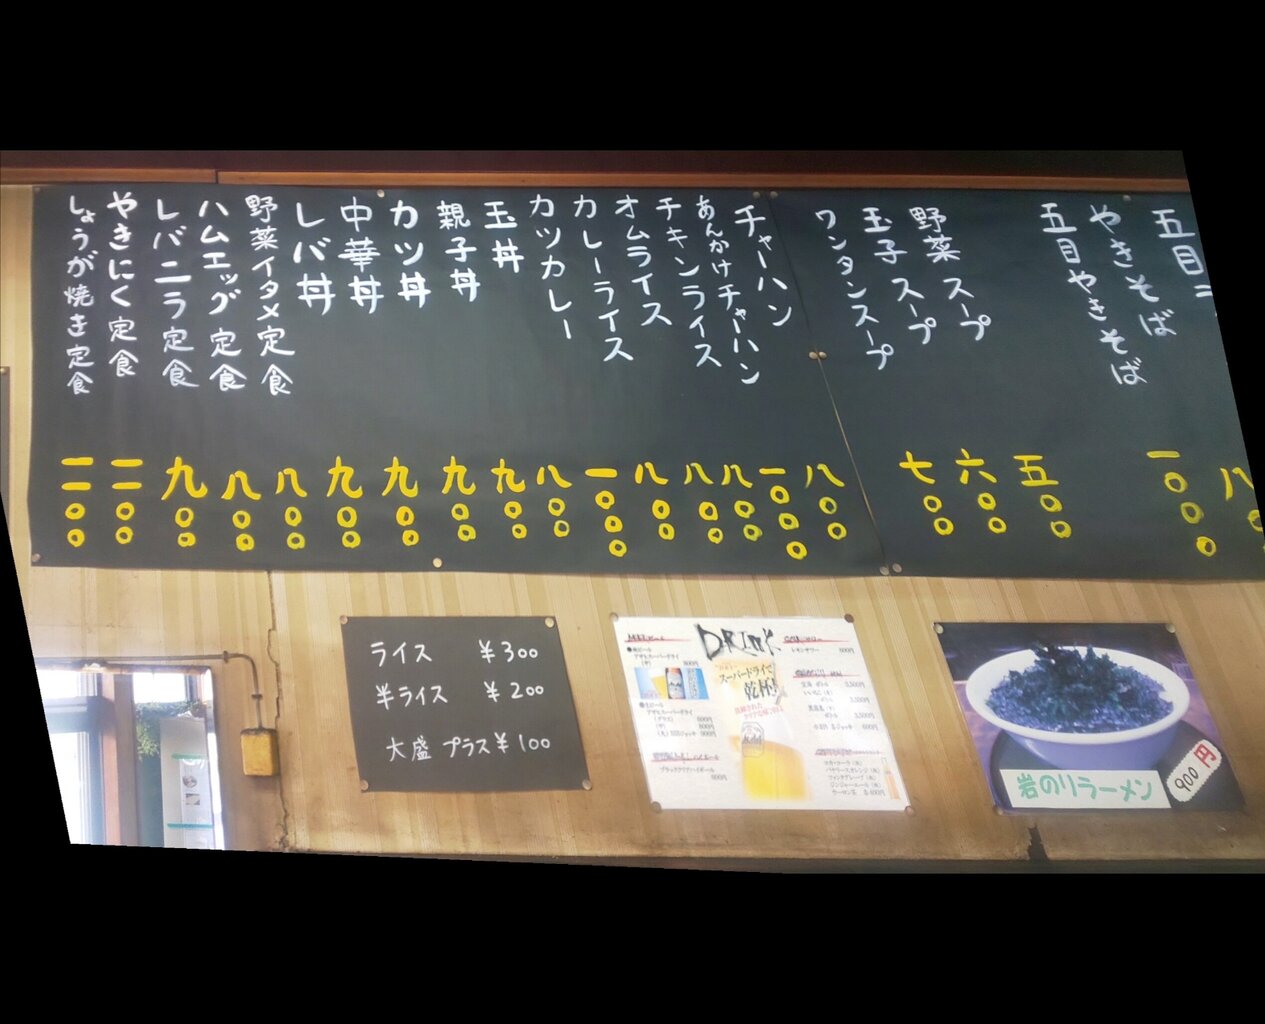 五目
やきそば 八〇〇
五目やきそば 一〇〇〇
野菜スープ 五〇〇
玉子スープ 六〇〇
ワンタンスープ 七〇〇
チャーハン 八〇〇
あんかけチャーハン 一〇〇〇
チキンライス 八〇〇
オムライス 八〇〇
カレーライス 八〇〇
カツカレー 一〇〇〇
玉丼 八〇〇
親子丼 九〇〇
カツ丼 九〇〇
中華丼 九〇〇
レバ丼 九〇〇
野菜イタメ定食 八〇〇
ハムエッグ定食 八〇〇
レバニラ定食 九〇〇
やきにく定食 一一〇〇
しょうが焼き定食 一一〇〇
ライス ¥300
半ライス ¥200
大盛 プラス¥100
DRINK
アサヒスーパードライ
スーパードライで
乾杯!
アサヒスーパードライ
ブラッククリアハイボール
レモンサワー
岩のりラーメン
900円